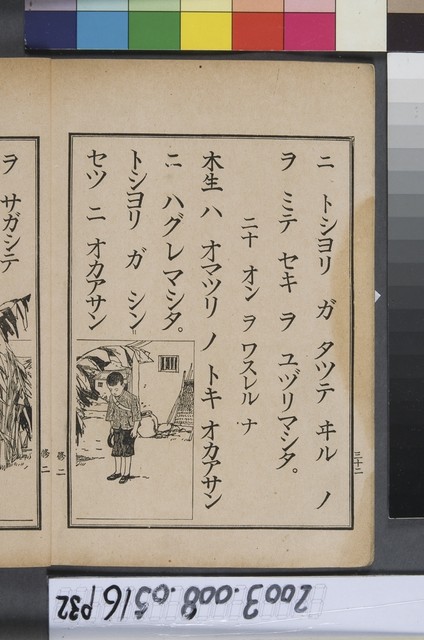 ニ トシヨリ ガ タツテ ヰル ノ
ヲ ミテ セキ ヲ ユヅリマシタ。
二十 オン ヲ ワスレル ナ
木生 ハ オマツリ ノ トキ オカアサン
ニ ハグレマシタ。
トシヨリ ガ シン
セツ ニ オカアサン
三十二
修二
修二
ヲ サガシテ
2003.008.0516 P32